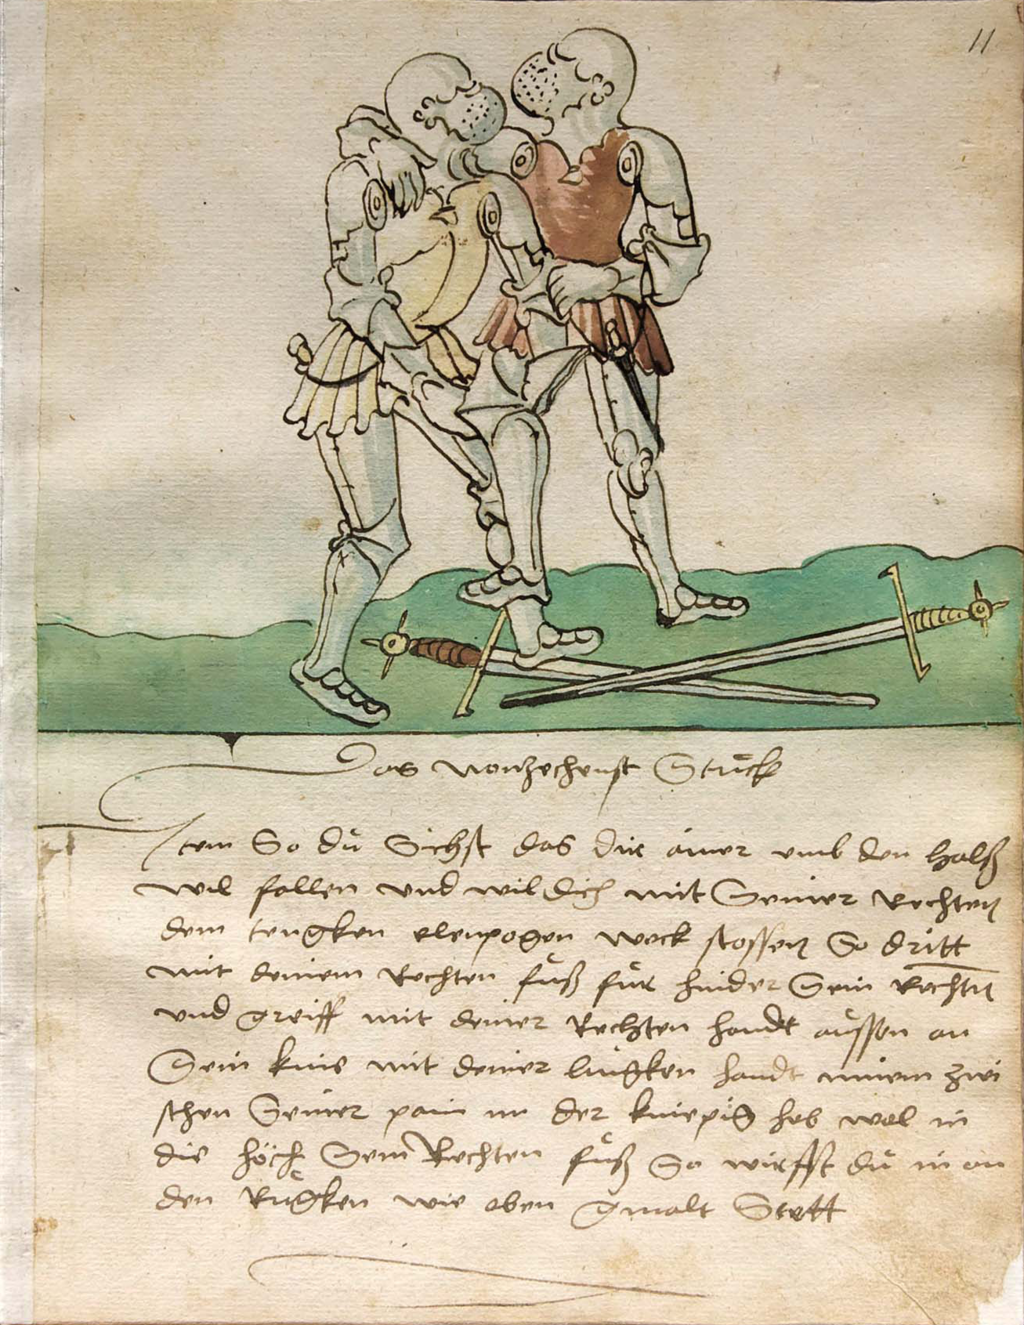 11
Das nonzechenst Stuckh
Item So du Sichst das dir ainer umb den halß
wil fallen und wil dich mit Seiner Rechten
dem lengken elenpogen weck stossen So dritt
mit deinem Rechten fuß für hinder Sein Rechtn
und greiff mit deiner Rechten handt aussen an
Sein knie mit deiner lingken handt innem zwi
schen Seiner pain in der kniepig heb wol in
die höch Sein Rechten fuß So wirfst du in an
den Rugken wie oben gmalt Stett